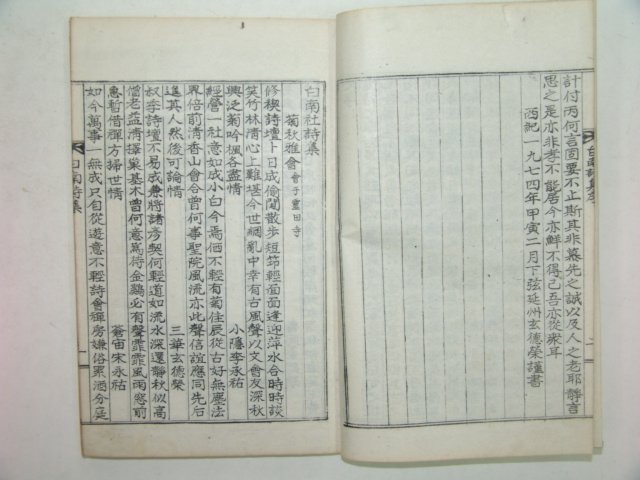 計付丙何言固要不止斯其非慕先之誠以及人之老耶靜言
思之是亦非孝不能居今亦鮮不得已吾亦從衆耳
西紀一九七四年甲寅二月下弦延州玄德榮謹書
白南社詩集
菊秋雅會 會于靈田寺
修稧詩壇卜日成偷閒散步短筇輕面面逢迎萍水合時時談
笑竹林淸心上難堪今世綱亂中幸有古風聲以文會友深秋
興泛菊吟楓各盡情
小隱李永祐
經營一社意如成小白今焉価不輕有菊佳辰從古好無塵法
界倍前淸香山會合曾何事聖院風流亦此聲信誼應同先后
進其人然後可論情
三華玄德榮
叔季詩壇不易成兼將諸務契何輕道如流水深還靜秋似高
僧老益淸擇巢基木曾何意馬待金鷄必有聲霏霏風雨窓前
急暫借禪方掃世情
蒼宙宋永祐
如今萬事一無成只自從遊意不輕詩會禪房嫌俗累酒分苑
白南詩集
一